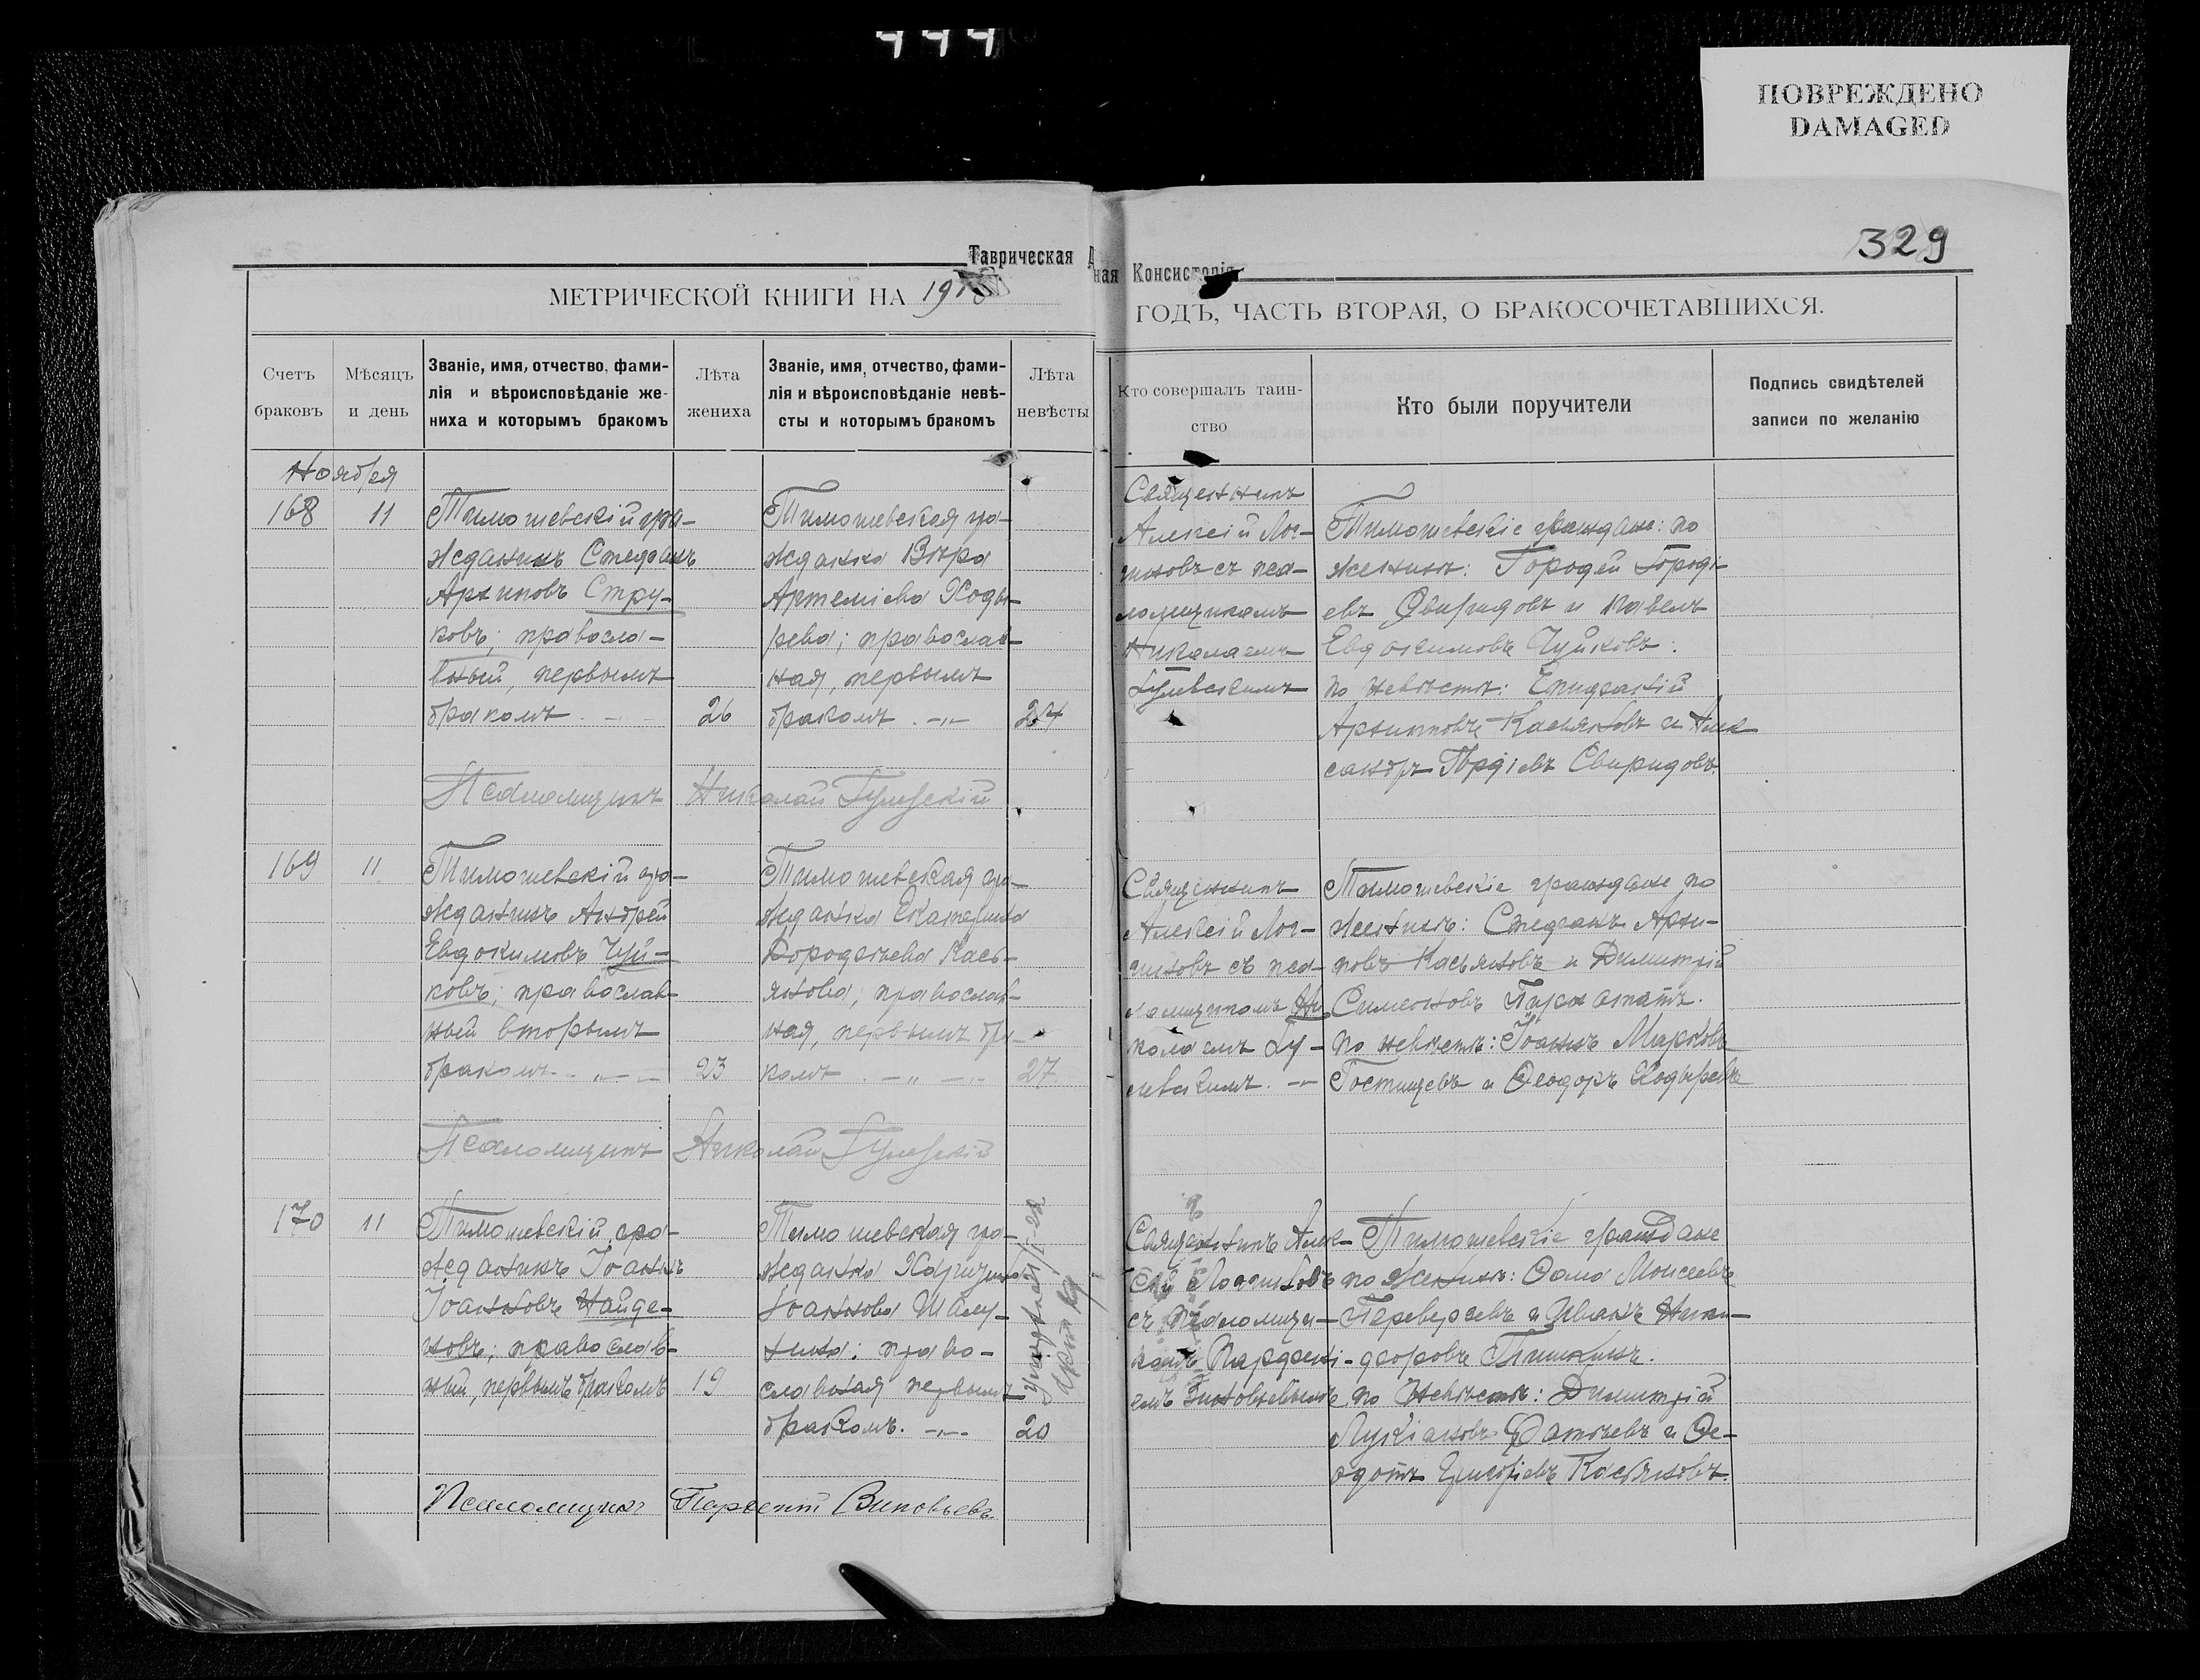 ПОВРЕЖДЕНО
DAMAGED
329
Таврическая
ная Консисторія
МЕТРИЧЕСКОЙ КНИГИ НА
ГОДЪ, ЧАСТЬ ВТОРАЯ, О БРАКОСОЧЕТАВШИХСЯ.
Счетъ
браковъ
Мѣсяцъ
и день
Званіе, имя, отчество, фами-
лія и вѣроисповѣданіе же-
ниха и которымъ бракомъ
Лѣта
жениха
Званіе, имя, отчество, фами-
лія и вѣроисповѣданіе невѣ-
сты и которымъ бракомъ
Лѣта
невѣсты
Кто совершалъ таин-
ство
Кто были поручители
Подпись свидѣтелей
записи по желанію
Ноября
168
11
Тимошевскій гра-
жданинъ Стефанъ
Архиповъ Стру-
ковъ; правосла-
вный, первымъ
бракомъ
26
Тимошевская гра-
жданка Вѣра
Артеміева Ходы-
рева; православ-
ная, первымъ
бракомъ
24
Священникъ
Алексій Лог-
гиновъ съ пса-
ломщикомъ
Николаемъ
Гулевскимъ
Тимошевскіе граждане: по
женихѣ: Гордѣй Гордѣ-
евъ Свиридовъ и Павелъ
Евдокимовъ Чуйковъ:
по невѣстѣ: Епифаній
Архиповъ Касьяновъ и Алек
сандръ Гордіевъ Свиридовъ.
Псаломщикъ Николай Гулевскій
169
11
Тимошевскій гра-
жданинъ Андрей
Евдокимовъ Чуй-
ковъ; православ-
ный вторымъ
бракомъ
23
Тимошевская гра-
жданка Екатерина
Дорофѣева Кась-
янова; православ-
ная, первымъ бра-
комъ
27
Священникъ
Алексій Лог-
гиновъ съ пса-
ломщикомъ Ни
колаемъ Гу-
левскимъ.
Тимошевскіе граждане по
женихѣ: Стефанъ Архи-
повъ Касьяновъ и Димитрій
Симеоновъ
по невѣстѣ: Іоаннъ Марковъ
Гостищевъ и Ѳеодоръ Ходыревъ
Псаломщикъ Николай Гулевскій
170
11
Тимошевскій гра-
жданинъ Іоаннъ
Іоанновъ Найде-
новъ; православ-
ный, первымъ бракомъ
19
Тимошевская гра-
жданка Харитина
Іоаннова Шалу-
хина: право-
славная первымъ
бракомъ.
20
Священникъ Алек-
сій Логгиновъ
съ псаломщи-
комъ Парфені-
емъ Зиновьевымъ
Тимошевскіе граждане
по женихѣ: Ѳома Моисеевъ
Переверзевъ и Иванъ Ники-
форовъ Тишкинъ.
по невѣстѣ: Димитрій
Лукіановъ Фатѣевъ и Ѳе-
одотъ Григоріевъ Касьяновъ.
Псаломщикъ Парфеній Зиновьевъ.